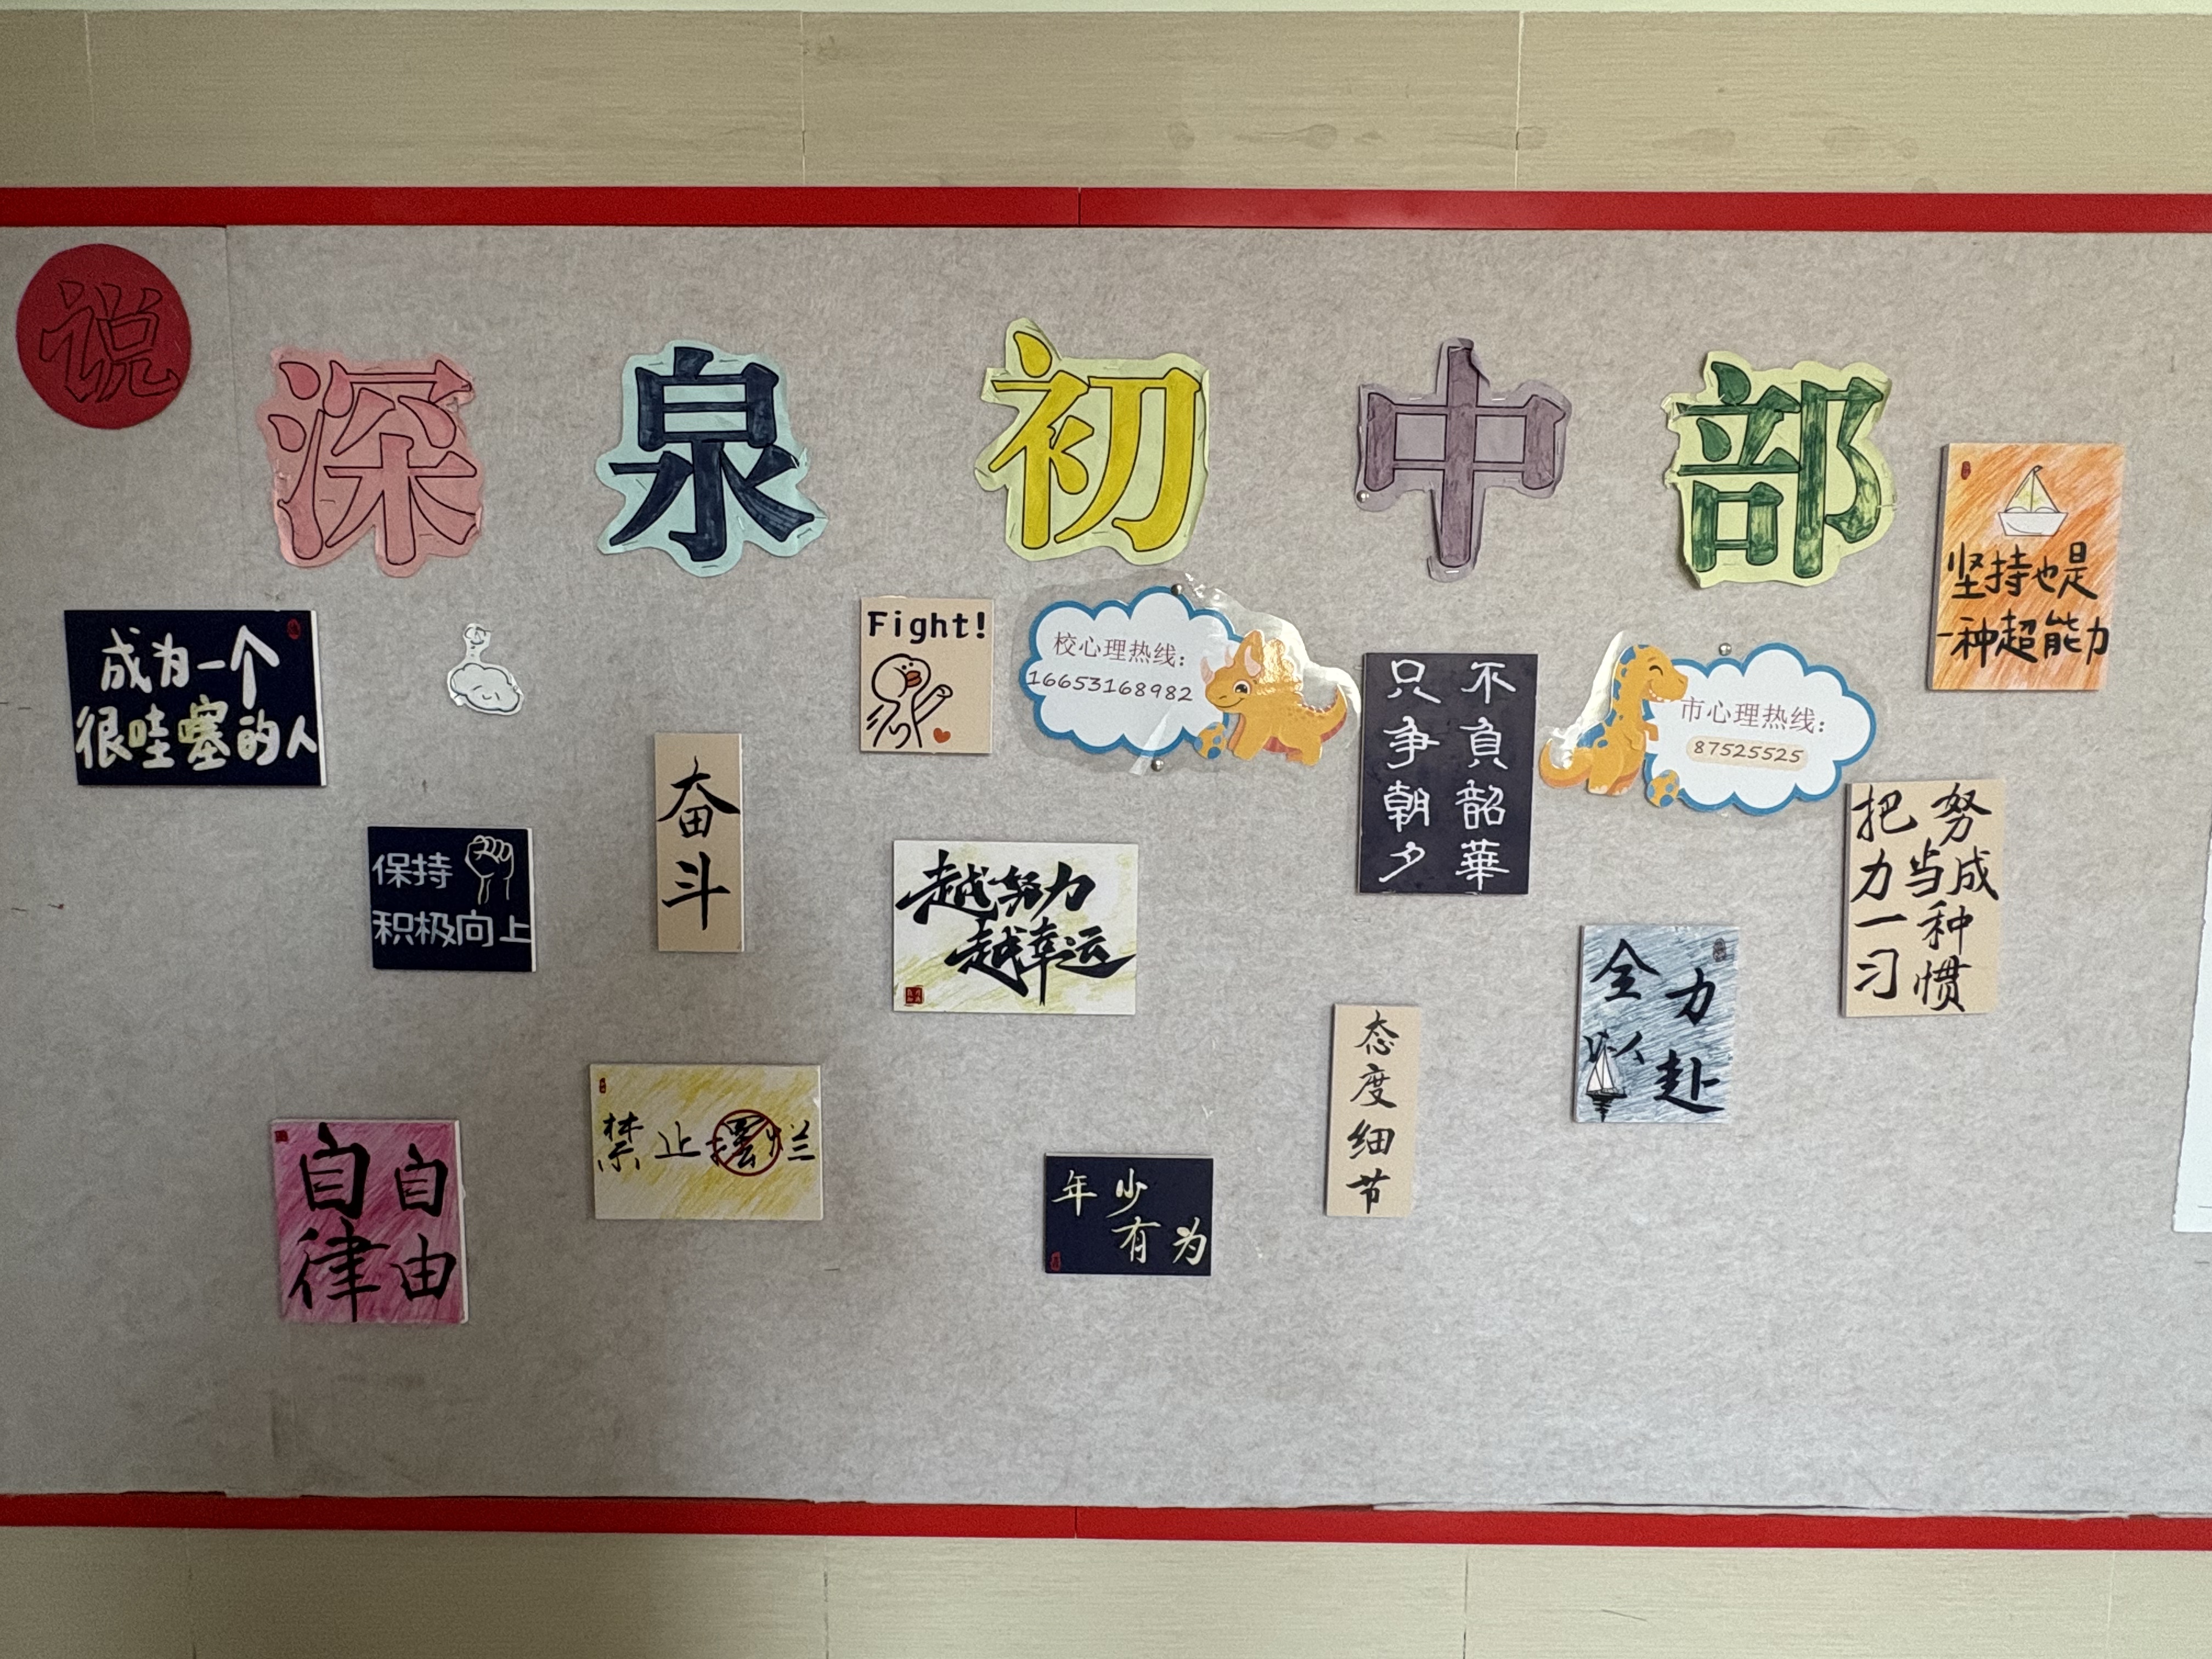 说
深泉初中部
坚持也是
一种超能力
成为一个
很哇塞的人
Fight!
校心理热线：
16653168982
不负韶華
只争朝夕
市心理热线：
87525525
奋斗
把努
力当成
一种
习惯
保持
积极向上
越努力
越幸运
全力
以赴
态度细节
禁止摆烂
自律
自由
年少
有为